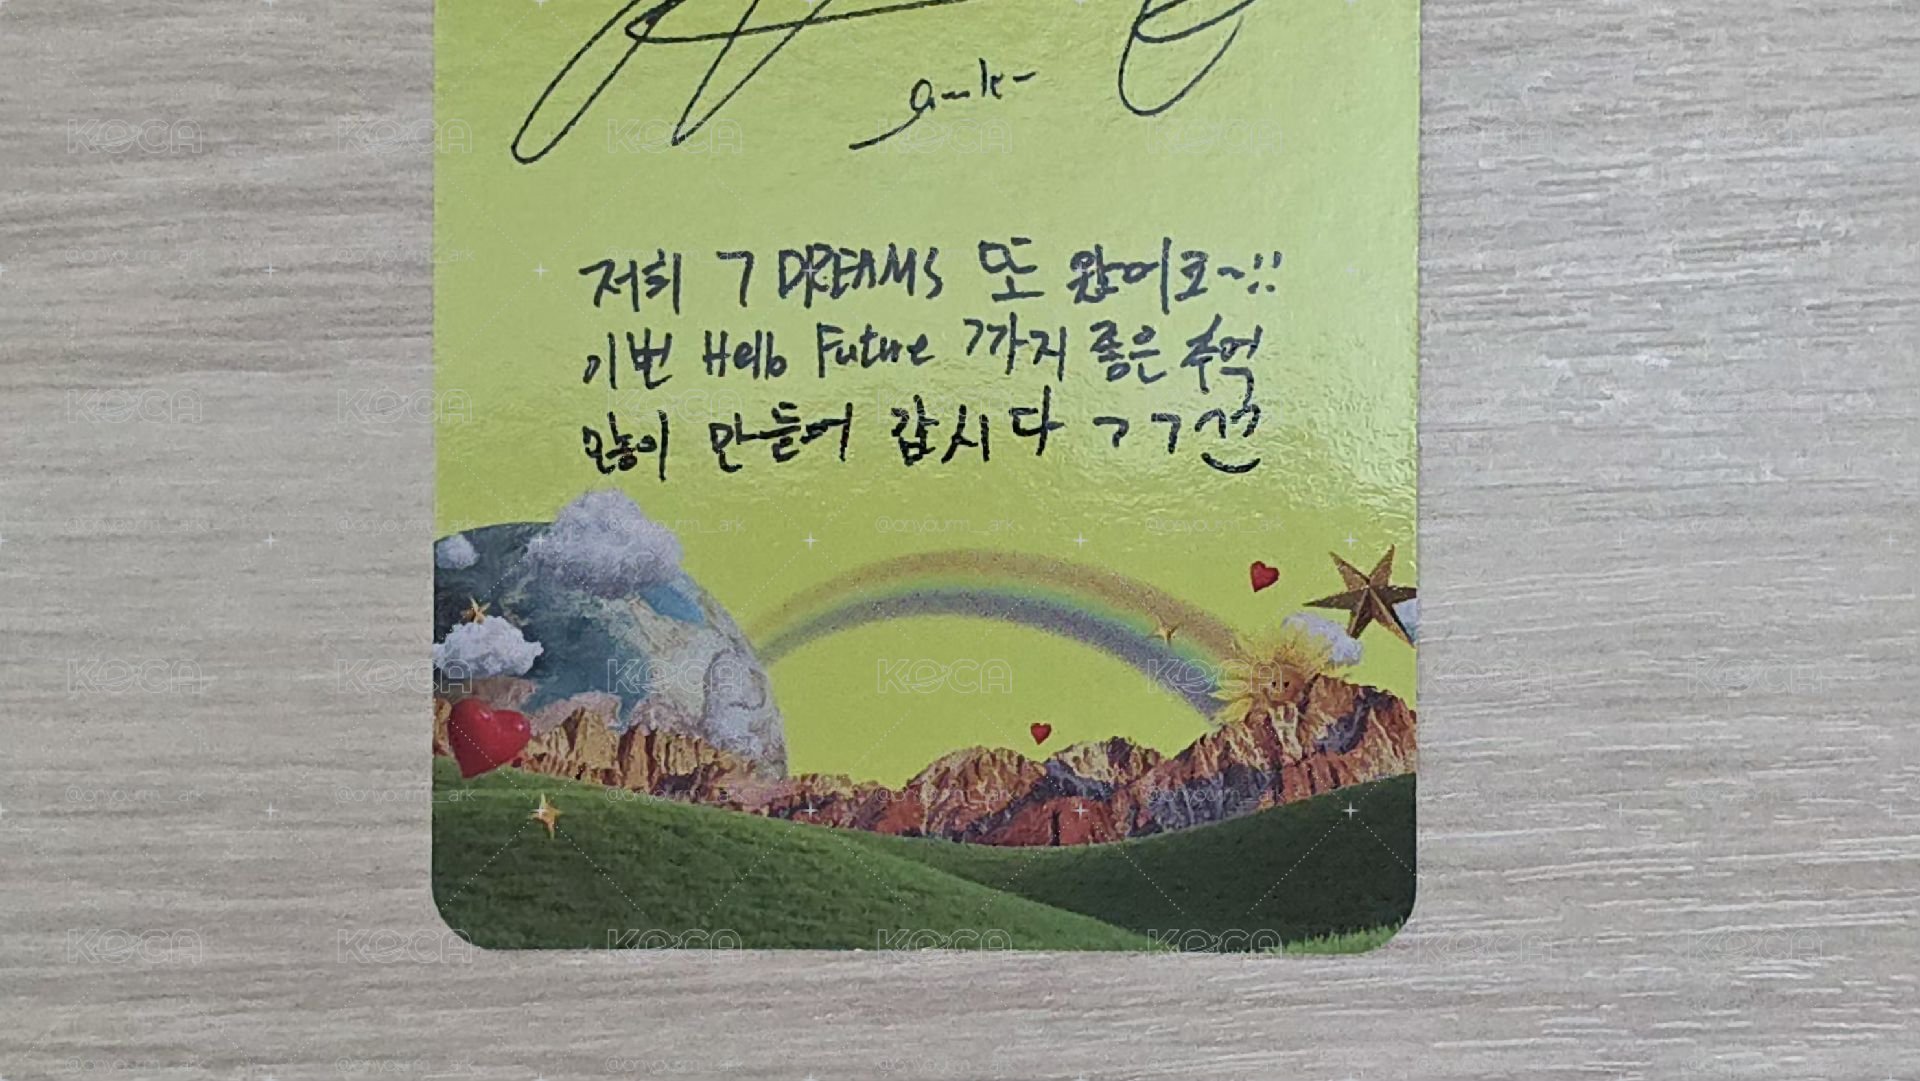 저희 7 DREAMS 또 왔어요~!!
이번 Hello Future 까지 좋은 추억
많이 만들어 갑시다 ㄱㄱ
KOCA
@onyourm_ark